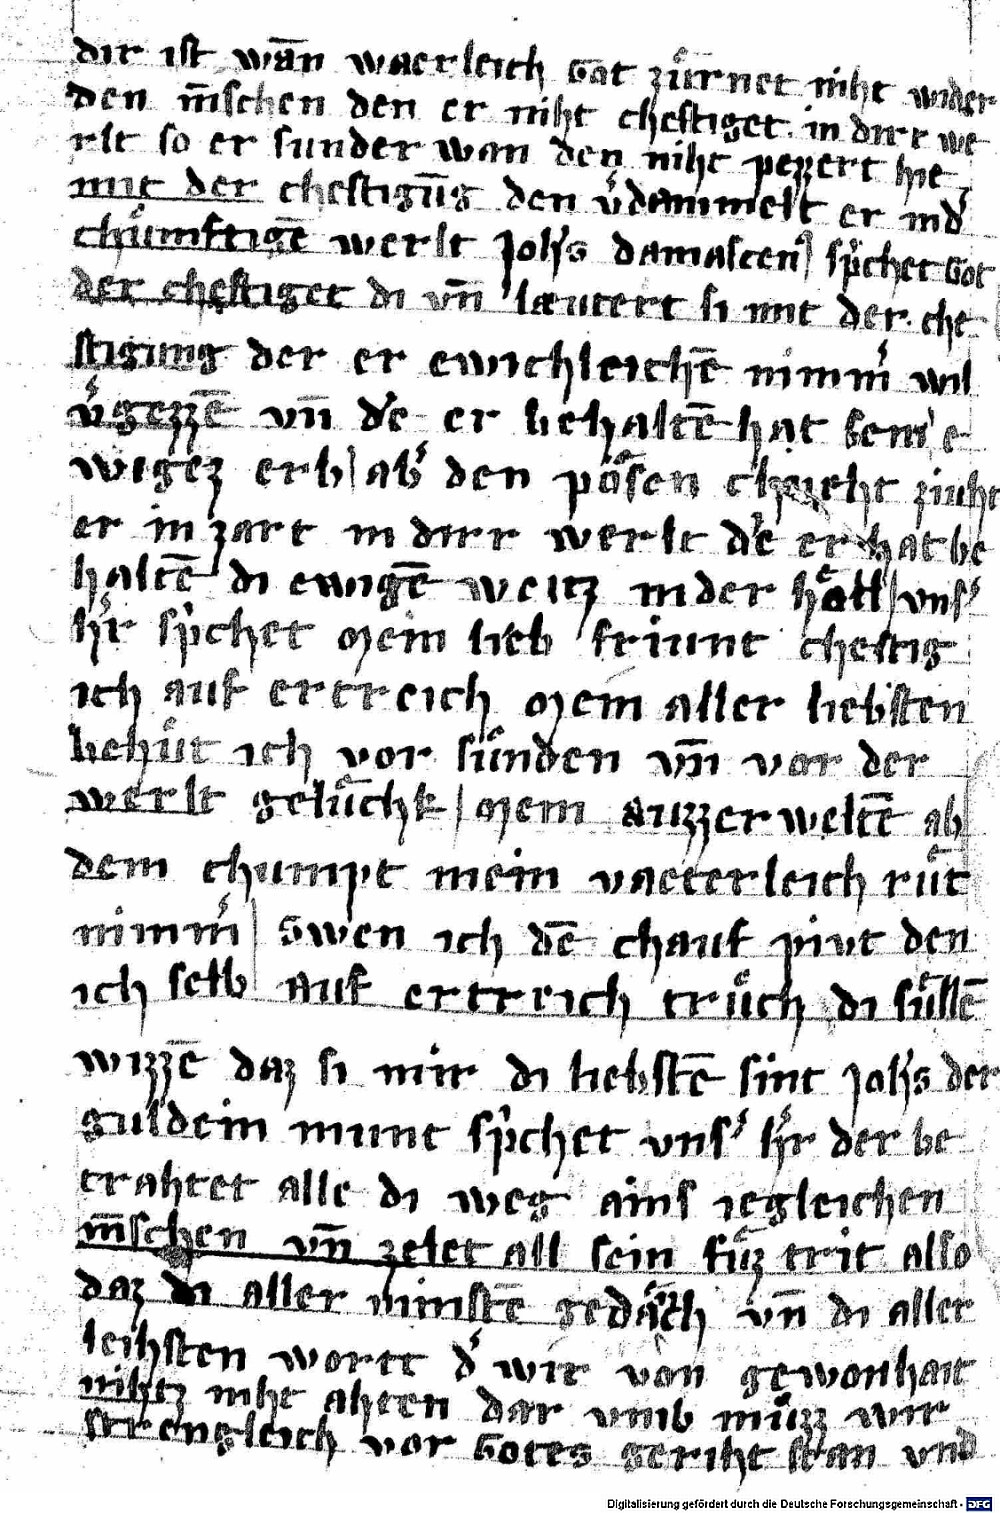 dir ist wan̄ waerleich Got zuͤrnet niht wider
den m̄schen den er niht chestiget in dirr we
rlt so er sunder wan den niht pezzert hie
mit der chestigūg den v͛dammelt er in d͛
chuͤmftigē werlt Joh͛s damascen͛ sp͛chet Got
der chestiget di vn̄ laeutert si mit der che
stigung der er ewichleichē nimm͛ wil
v͛gezzē vn̄ d͛e er behaltē hat sem e
wigez erb / ab͛ den poͤsen chneht ziuht
er in zart in dirr werlt d͛e er hat be
haltē di ewigē weitz in der hoͤll / vns͛
h͛r sp͛chet Mein lieb friunt chestig
ich auf ertreich Mein aller liebsten
behuͤt ich vor suͤnden vn̄ vor der
werlt geluͤchk / Mein auzzerweltē ab
dem chumpt mein vaeterleich ruͤt
nimm͛ / Swen ich dē chauf pivt den
ich selb auf ertreich truͤch di suͤllē
wizzē daz si mir di liebstē sint Joh͛s der
guldein munt sp͛chet vns͛ h͛r der be
trahtet alle di weg ains iegleichen
m̄schen vn̄ zelet all sein fuͤz trit also
daz di aller minstē gedaͤch vn̄ di aller
leihsten wortt d͛ wir von gewonhait
nihtz niht ahten dar vmb muͤzz wir
strengleich vor Gotes geriht stan vnd
Digitalisierung gefördert durch die Deutsche Forschungsgemeinschaft - DFG